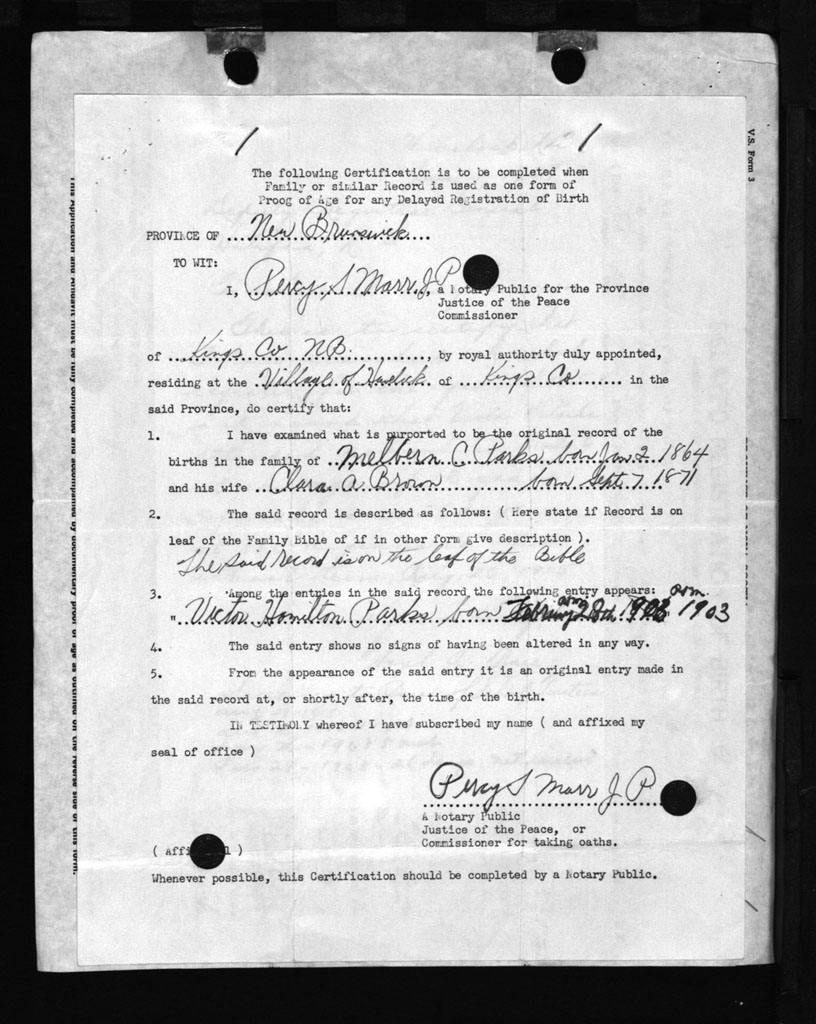 V.S. Form 3
The following Certification is to be completed when
Family or similar Record is used as one form of
Proog of Age for any Delayed Registration of Birth
PROVINCE OF New Brunswick
TO WIT:
I, Percy S Marr J P, a Notary Public for the Province
Justice of the Peace
Commissioner
of Kings Co NB., by royal authority duly appointed,
residing at the Village of Havelock of Kings Co in the
said Province, do certify that:
1. I have examined what is purported to be the original record of the
births in the family of Melbern C Parks born Jan 2 1864
and his wife Clara A Brown born Sept 7 1871
2. The said record is described as follows: ( Here state if Record is on
leaf of the Family Bible of if in other form give description ).
The said record is on the leaf of the Bible
3. Among the entries in the said record the following entry appears:
" Victor Hamilton Parks born February 28th 1903
4. The said entry shows no signs of having been altered in any way.
5. From the appearance of the said entry it is an original entry made in
the said record at, or shortly after, the time of the birth.
IN TESTIMONY whereof I have subscribed my name ( and affixed my
seal of office )
Percy S Marr J P.
A Notary Public
Justice of the Peace, or
Commissioner for taking oaths.
Whenever possible, this Certification should be completed by a Notary Public.